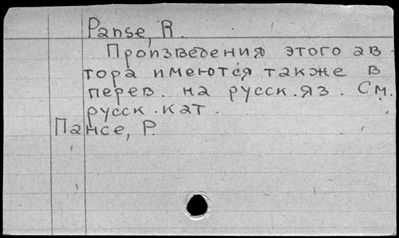 Panse, R.
Произведения этого ав-
тора имеются также в
перев. на русск. яз. См.
русск. кат.
Пансе, Р.